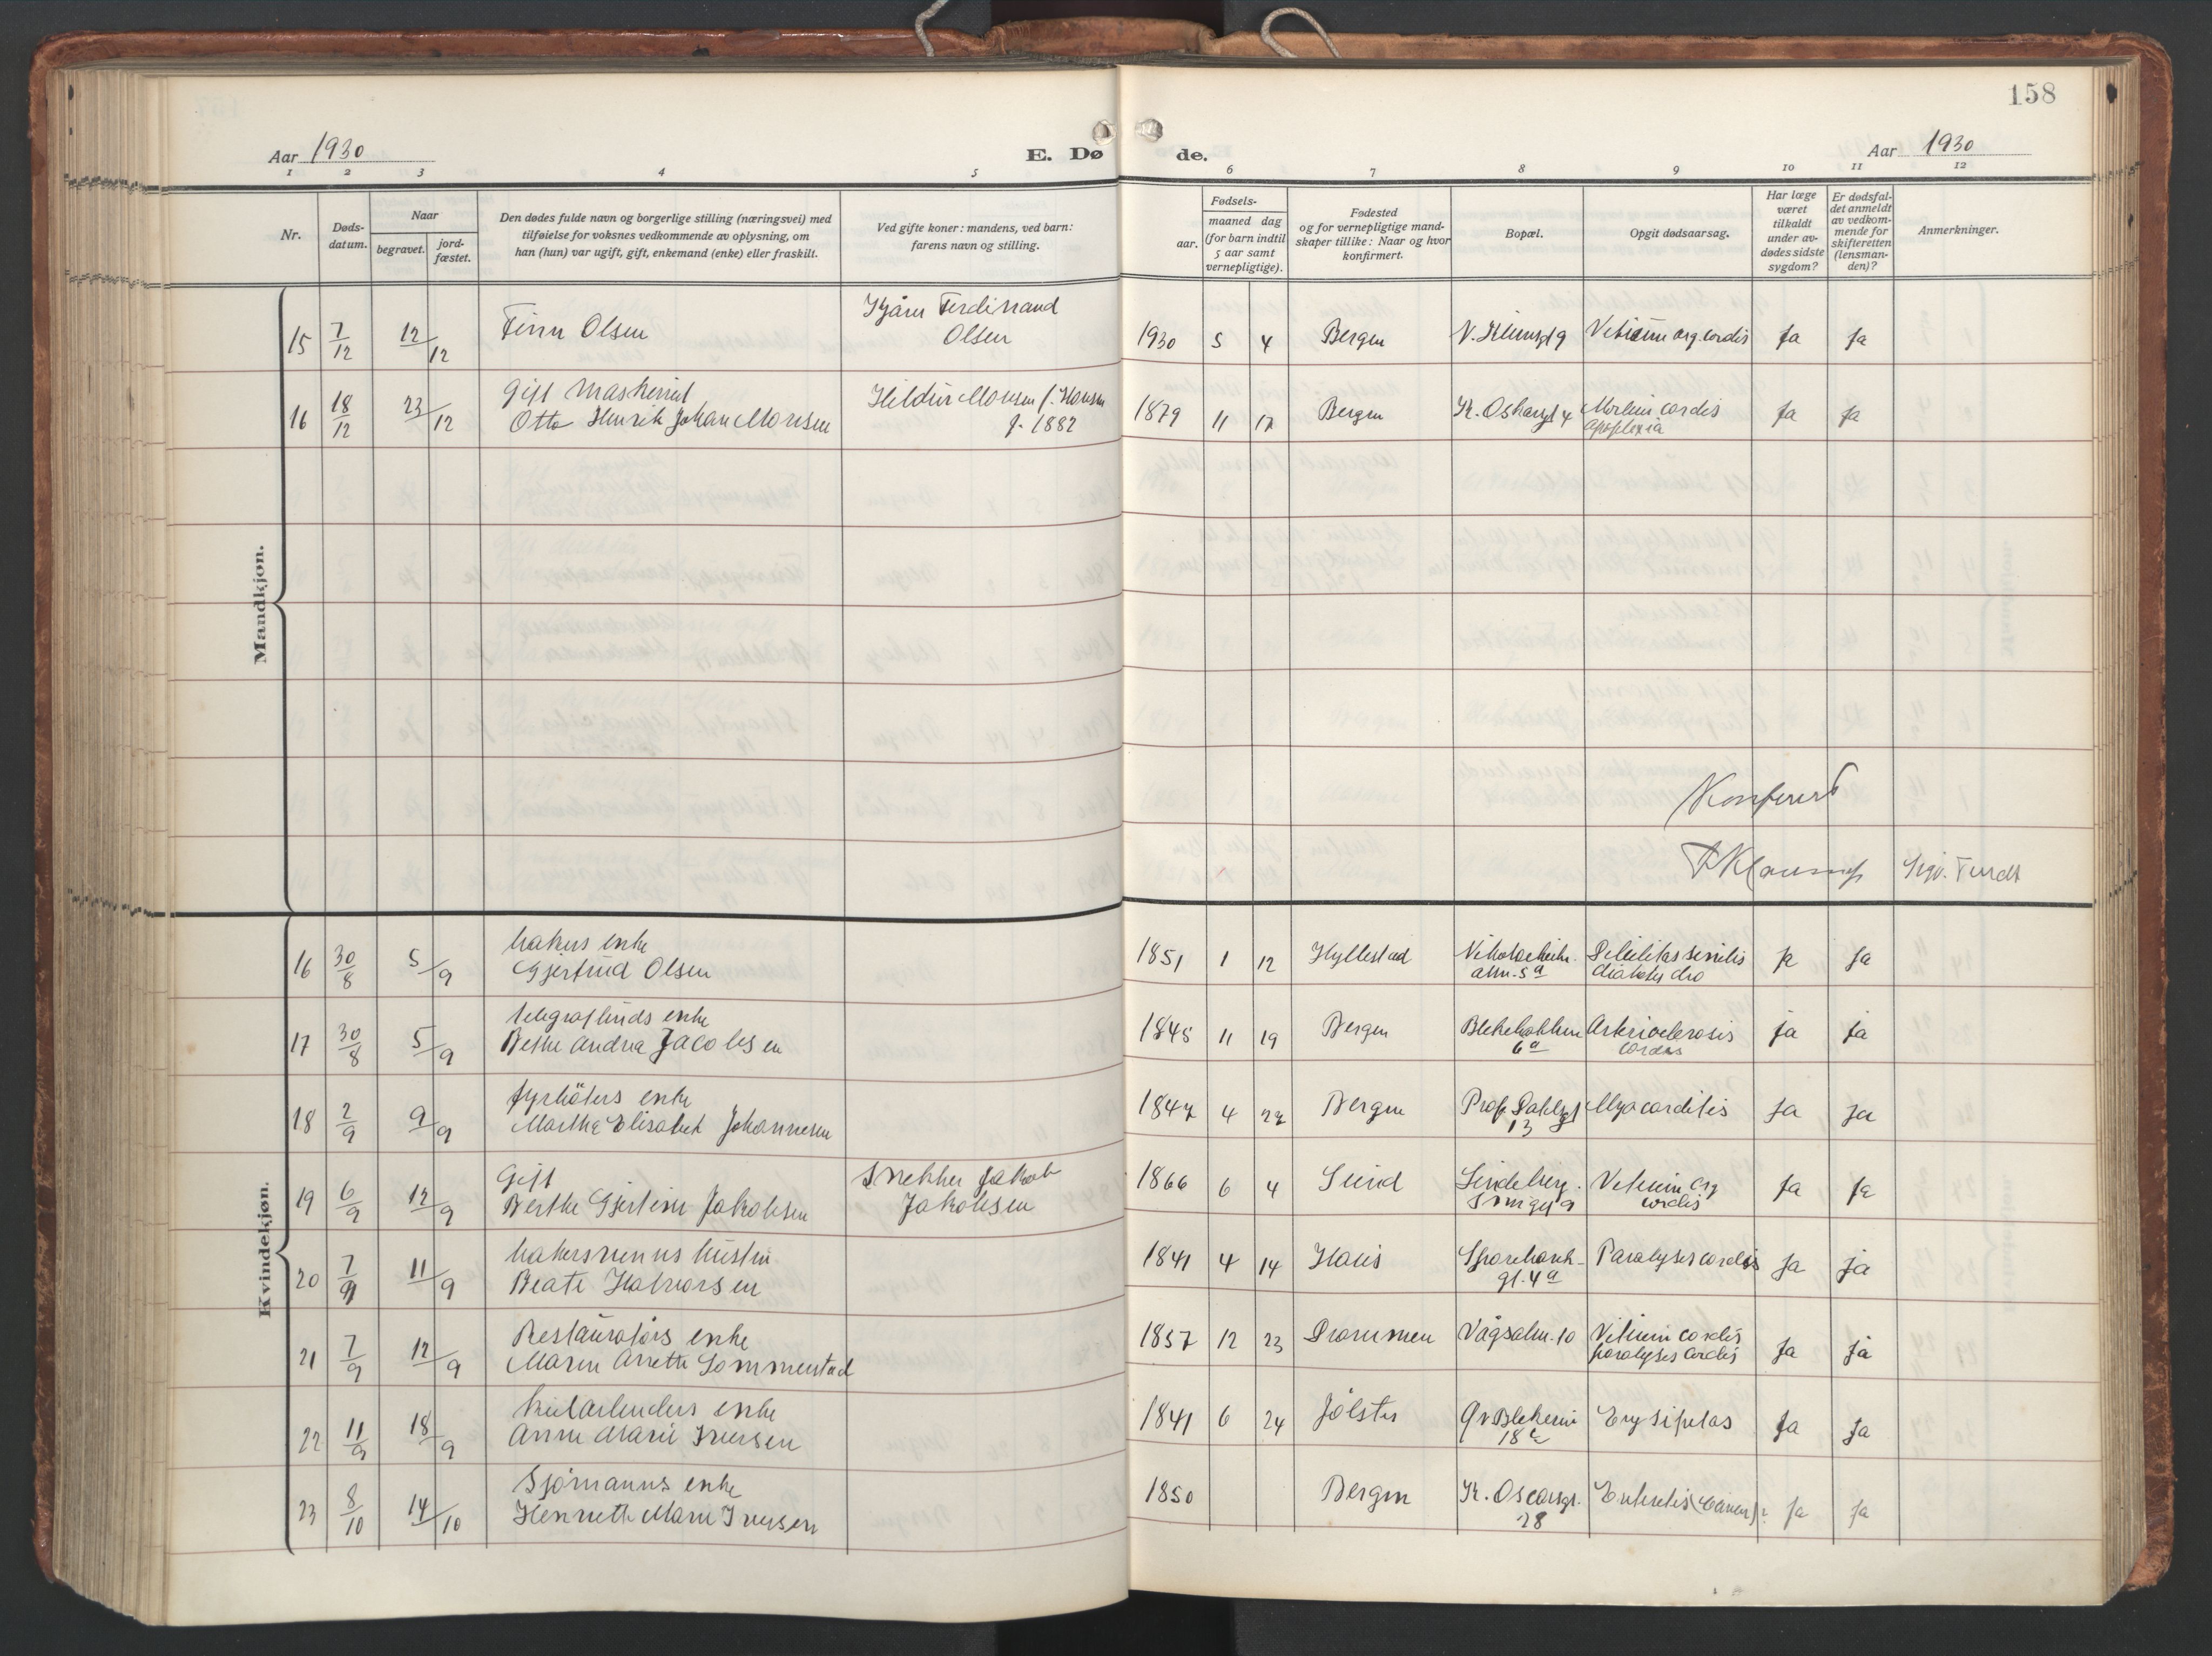 158
Aar 1930
E. Dø de.
Aar 1930
1 2 3 4 5 6 7 8 9 10 11 12
Nr.
Døds-
datum.
Naar
begravet.
jord-
fæstet.
Den dødes fulde navn og borgerlige stilling (næringsvei) med
tilføielse for voksnes vedkommende av oplysning, om
han (hun) var ugift, gift, enkemand (enke) eller fraskilt.
Ved gifte koner: mandens, ved barn:
farens navn og stilling.
Fødsels-
aar.
maaned dag
(for barn indtil
5 aar samt
vernepligtige).
Fødested
og for vernepligtige mand-
skaper tillike: Naar og hvor
konfirmert.
Bopæl.
Opgit dødsaarsag.
Har læge
været
tilkaldt
under av-
dødes sidste
sygdom?
Er dødsfal-
det anmeldt
av vedkom-
mende for
skifteretten
(lensman-
den)?
Anmerkninger.
Mandkjøn.
15 7/12 12/12 Finn Olsen Ferdinand
Olsen 1930 5 4 Bergen Ja Ja
16 18/12 23/12 Gift Maskinist
Otto Henrik Johan Monsen Hildur Monsen f. Hansen
f. 1882 1879 11 Bergen K. Oskarsgt 4 Morbus cordis
Apoplexia Ja Ja
Konferert
Kvindekjøn.
16 30/8 5/9 bakers enke
Gjertrud Olsen 1851 1 12 Hyllestad
alm. 5a Debilitas senilis
Ja Ja
17 30/8 5/9 enke
Berthe Andrea Jacobsen 1845 11 19 Bergen Blekebakken
6a
cordis Ja Ja
18 2/9 9/9 fyrbøters enke
Martha Elisabeth Johannesen 1847 4 22 Bergen Prof. Dahlsgt
13 Myocarditis Ja Ja
19 6/9 12/9 Gift
Berthe Gjertine Jakobsen Snekker Jakob
Jakobsen 1866 6 4 Sund Vitium org
cordis Ja Ja
20 7/9 11/9
Beate Halvorsen 1841 4 14 Haus
gt. 4a Paralyses cordis Ja Ja
21 7/9 12/9 Restauratørs enke
Maren Anette Sommerstad 1857 12 23 Drammen Vågsalm. 10 Vitium cordis
paralyses cordis Ja Ja
22 11/9 18/9 enke
Anne Marie Iversen 1841 6 24 Jølster
18 Erysipelas Ja Ja
23 8/10 14/10 Sjømanns enke
Henriette Marie Iversen 1850 Bergen K. Oscarsgt.
28 Ja Ja